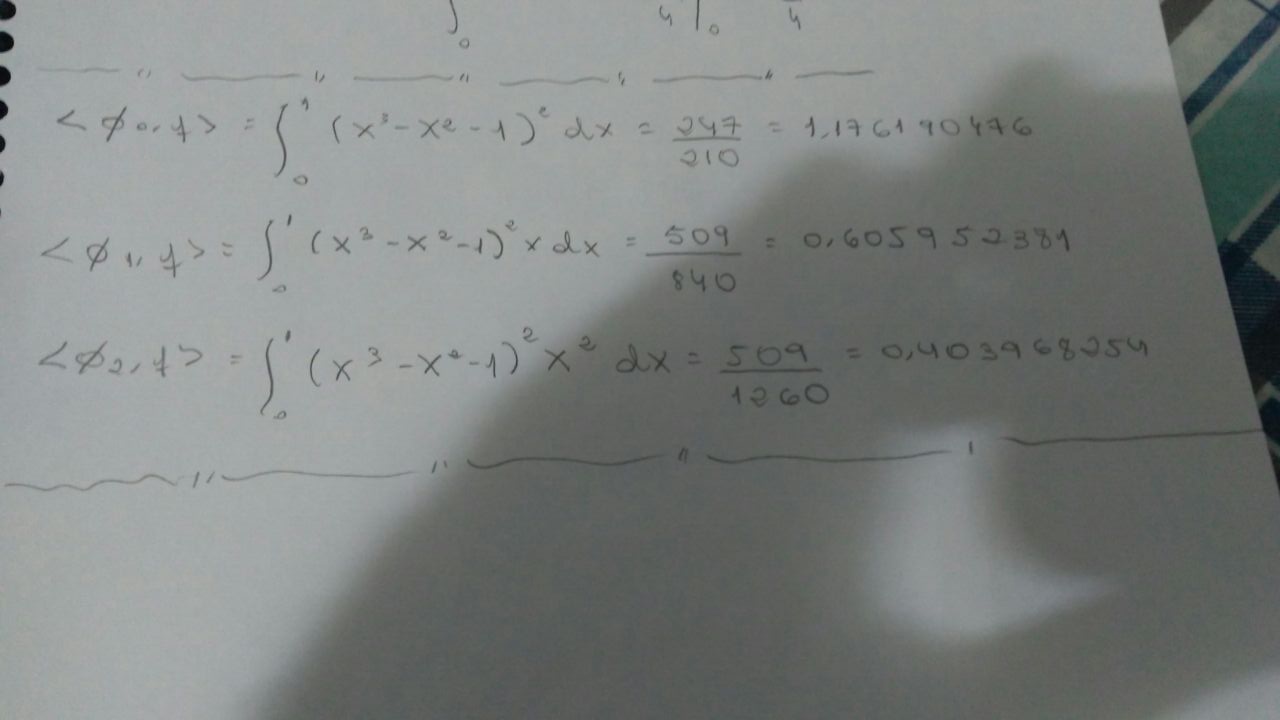 ∫₀ 4 |₀ 4
<ϕ₀, f> = ∫₀¹ (x³ - x² - 1)² dx = 247/210 = 1,176190476
<ϕ₁, f> = ∫₀¹ (x³ - x² - 1)² x dx = 509/840 = 0,605952381
<ϕ₂, f> = ∫₀¹ (x³ - x² - 1)² x² dx = 509/1260 = 0,403968254